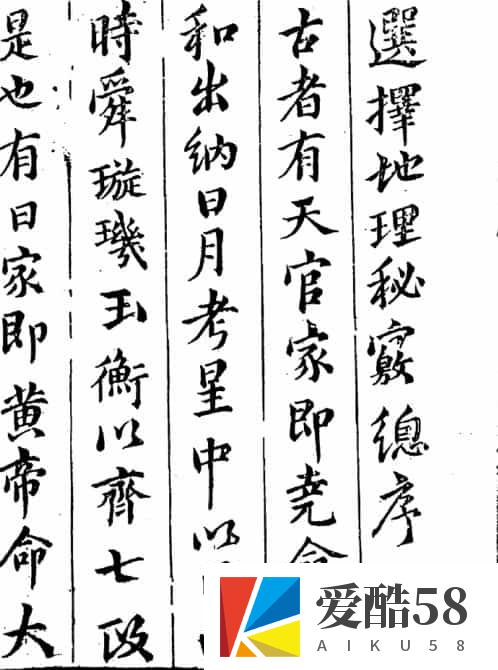 選擇地理秘竅總序
古者有天官家即堯命
和出納日月考星中以
時舜璇璣玉衡以齊七政
是也有日家即黄帝命大
爱酷58
AIKU58